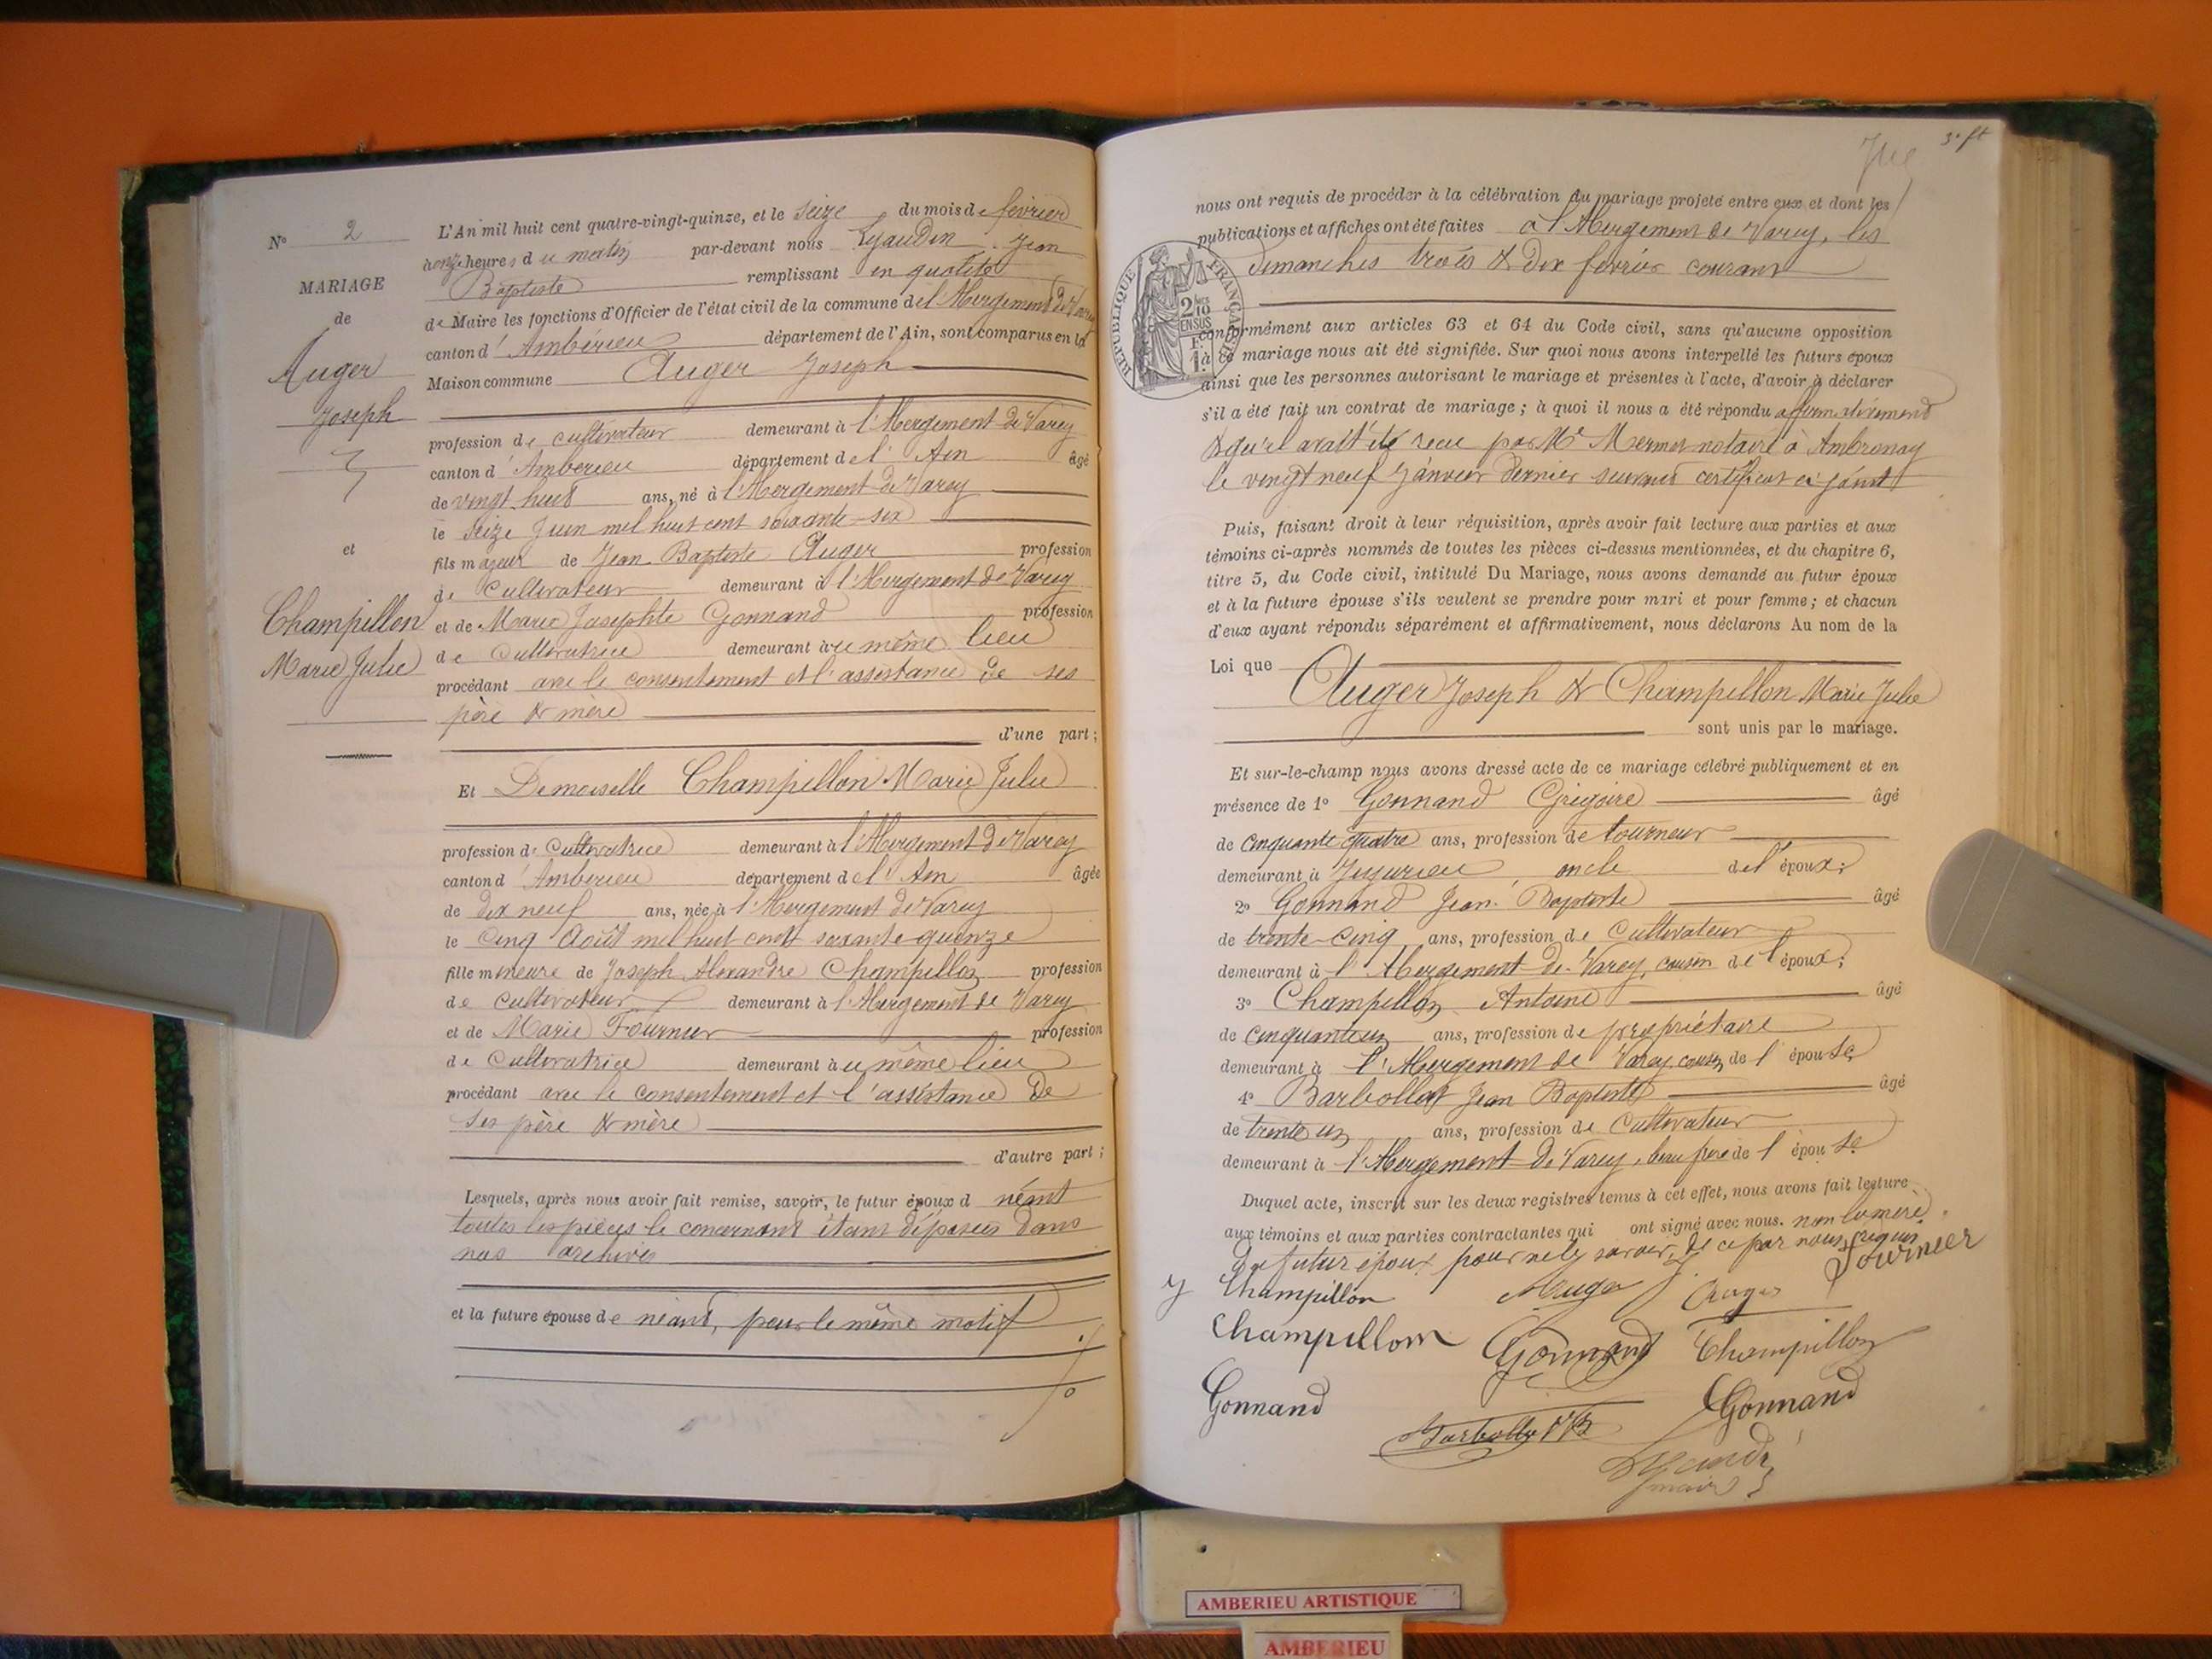 N° 2
MARIAGE
de
Auger
Joseph
et
Champillon
Marie Julie
L'An mil huit cent quatre-vingt-quinze, et le seize du mois de février
à onze heures du matin par-devant nous Jean
Baptiste remplissant en qualité
de Maire les fonctions d'Officier de l'état civil de la commune de l'Abergement de Varey
canton d'Ambérieu département de l'Ain, sont comparus en la
Maison commune Auger Joseph
profession de cultivateur demeurant à l'Abergement de Varey
canton d'Ambérieu département de l'Ain âgé
de vingt huit ans, né à l'Abergement de Varey
le seize Juin mil huit cent soixante-six
fils majeur de Jean Baptiste Auger profession
de cultivateur demeurant à l'Abergement de Varey
et de Marie Josephte Gonnand profession
de cultivatrice demeurant au même lieu
procédant avec le consentement et l'assistance de ses
père & mère
d'une part ;
Et Demoiselle Champillon Marie Julie
profession de cultivatrice demeurant à l'Abergement de Varey
canton d'Ambérieu département de l'Ain âgée
de dix neuf ans, née à l'Abergement de Varey
le cinq Août mil huit cent soixante-quinze
fille mineure de Joseph Alexandre Champillon profession
de cultivateur demeurant à l'Abergement de Varey
et de Marie Fournier profession
de cultivatrice demeurant au même lieu
procédant avec le consentement et l'assistance de
ses père & mère
d'autre part ;
Lesquels, après nous avoir fait remise, savoir, le futur époux d néant
toutes les pièces le concernant étant déposées dans
nos archives
et la future épouse de néant, pour le même motif
3e ft
nous ont requis de procéder à la célébration du mariage projeté entre eux et dont les
publications et affiches ont été faites à l'Abergement de Varey, les
dimanches trois & dix février courant
RÉPUBLIQUE FRANÇAISE
2/10
EN SUS
conformément aux articles 63 et 64 du Code civil, sans qu'aucune opposition
à ce mariage nous ait été signifiée. Sur quoi nous avons interpellé les futurs époux
ainsi que les personnes autorisant le mariage et présentes à l'acte, d'avoir à déclarer
s'il a été fait un contrat de mariage ; à quoi il nous a été répondu affirmativement
& qu'il avait été reçu par Me Mermet notaire à Ambronay
le vingt neuf Janvier dernier suivant certificat ci joint
Puis, faisant droit à leur réquisition, après avoir fait lecture aux parties et aux
témoins ci-après nommés de toutes les pièces ci-dessus mentionnées, et du chapitre 6,
titre 5, du Code civil, intitulé Du Mariage, nous avons demandé au futur époux
et à la future épouse s'ils veulent se prendre pour mari et pour femme ; et chacun
d'eux ayant répondu séparément et affirmativement, nous déclarons Au nom de la
Loi que
Auger Joseph & Champillon Marie Julie
sont unis par le mariage.
Et sur-le-champ nous avons dressé acte de ce mariage célébré publiquement et en
présence de 1° Gonnand Grégoire âgé
de cinquante quatre ans, profession de tourneur
demeurant à Jujurieu, oncle de l'époux ;
2° Gonnand Jean Baptiste âgé
de trente-cinq ans, profession de cultivateur
demeurant à l'Abergement de Varey, cousin de l'époux ;
3° Champillon Antoine âgé
de cinquante un ans, profession de propriétaire
demeurant à l'Abergement de Varey, cousin de l'épouse,
4° Barbollat Jean Baptiste âgé
de trente un ans, profession de cultivateur
demeurant à l'Abergement de Varey, beau frère de l'épouse
Duquel acte, inscrit sur les deux registres tenus à cet effet, nous avons fait lecture
aux témoins et aux parties contractantes qui ont signé avec nous. non la mère
du futur époux pour ne le savoir, de ce par nous requis
Champillon Auger J. Auger Fournier
Champillon Gonnand Champillon
Gonnand Gonnand
maire
AMBERIEU ARTISTIQUE
AMBERIEU